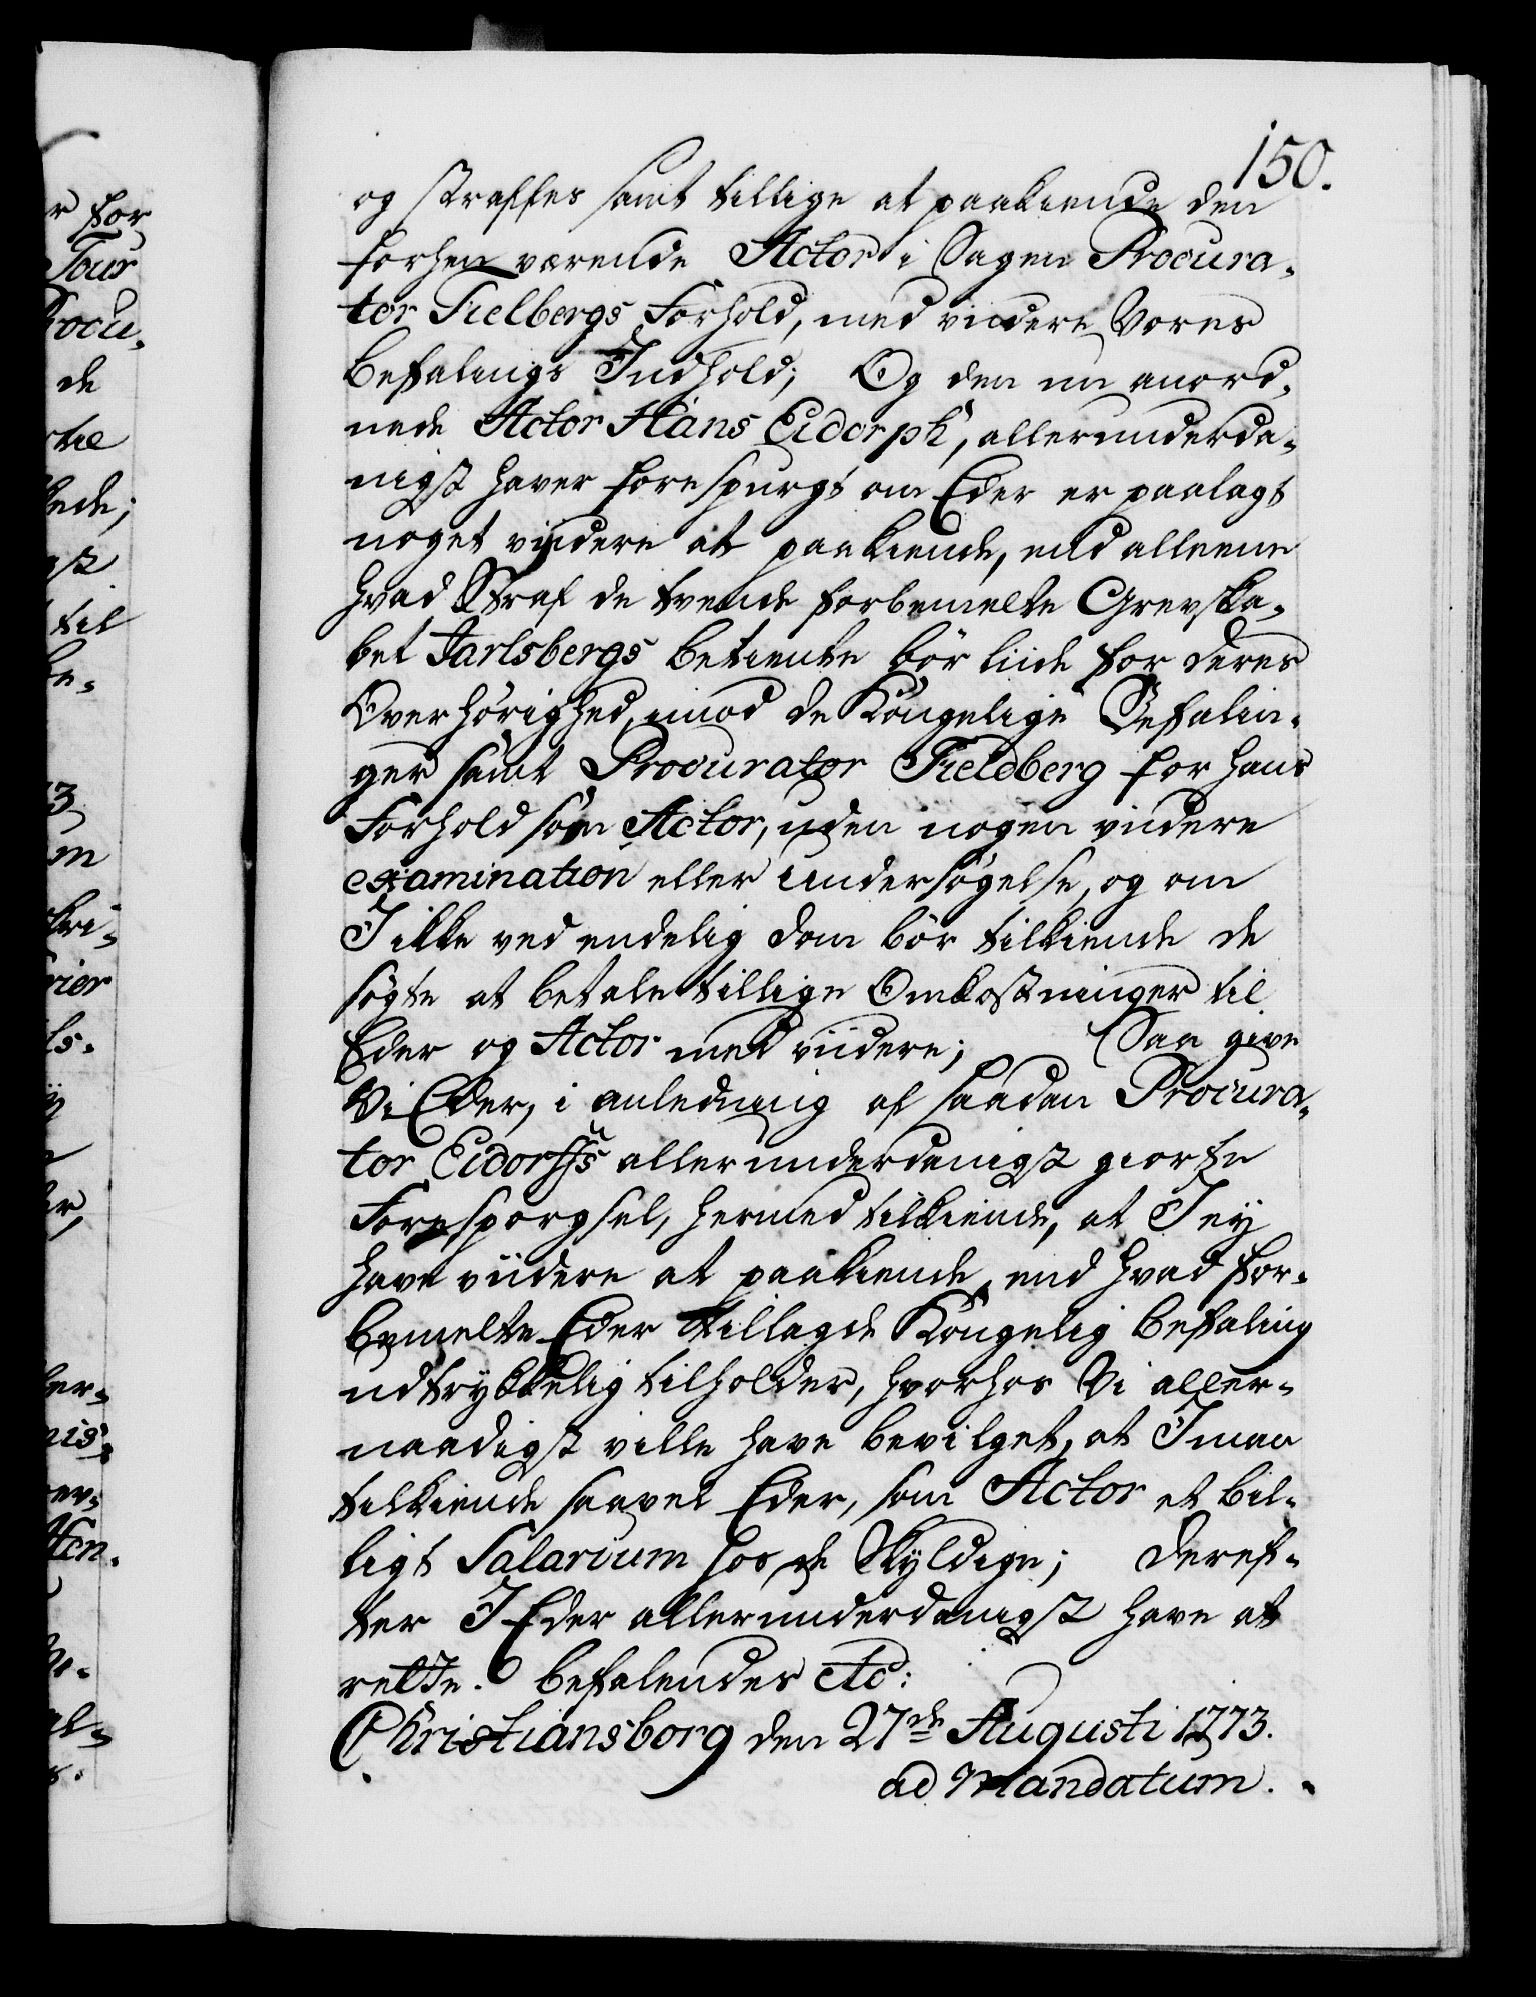 150.
og straffes samt tillige at paakiende den
forhen værende Actor i Sagen Procura-
tor Fielbergs Forhold, med viidere Vores
Befalings Indhold; Og den nu anord-
nede Actor Hans Eidorph, allerunderda-
nigst haver forespurgt om Eder er paalagt
noget viidere at paakiende, end alleene
hvad Straf de tvende forbemelte Grevska-
bet Jarlsbergs betiente bör liide for deres
Overhörighed imod de Kongelige Befalin-
ger samt Procurator Fieldberg for hans
Forhold som Actor, uden nogen viidere
examination eller undersögelse, og om
I ikke ved endelig Dom bör tilkiende de
søgte at betale tillige Omkostninger til
Eder og Actor med viidere; Saa give
Vi Eder, i anledning af saadan Procura-
tor Eidorffs allerunderdanigst giorte
Forespörgsel, hermed tilkiende, at I ey
have viidere at paakiende, end hvad for-
bemelte Eder tillagde Kongelig Befaling
udtrykkelig tilholder, hvorhos Vi aller-
naadigst ville have bevilget, at I maa
tilkiende saavel Eder, som Actor et bil-
ligt Salarium hos de Skyldige; Deref-
ter I Eder allerunderdanigst have at
rette. Befalendes etc:
Christiansborg den 27de Augusti 1773.
ad Mandatum.
r for
Tour
Procu-
de
til
3